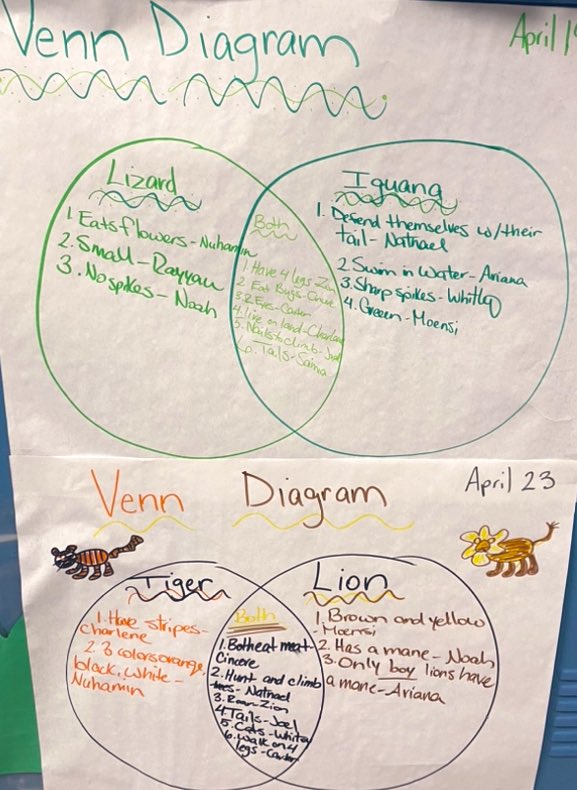 Venn Diagram
April
Lizard
1. Eats flowers-Nuhamin
2. Small-Rayyan
3. No spikes-Noah
Both
1. Have 4 legs-Zion
2. Eat Bugs-Cincere
3. 2 Eyes-Carter
4. Live on land-Charlene
5. Nails to climb-Joel
6. Tails-Saima
Iguana
1. Defend themselves w/their
tail-Nathael
2. Swim in water-Ariana
3. Sharp spikes-Whitley
4. Green-Moensi
Venn Diagram
April 23
Tiger
1. Have stripes-
Charlene
2. 3 colors orange,
black, white-
Nuhamin
Both
1. Both eat meat-
Cincere
2. Hunt and climb
trees-Nathael
3. Roar-Zion
4. Tails-Joel
5. Cats-Whitley
6. Walk on 4
legs-Carter
Lion
1. Brown and yellow
-Moensi
2. Has a mane-Noah
3. Only boy lions have
a mane-Ariana